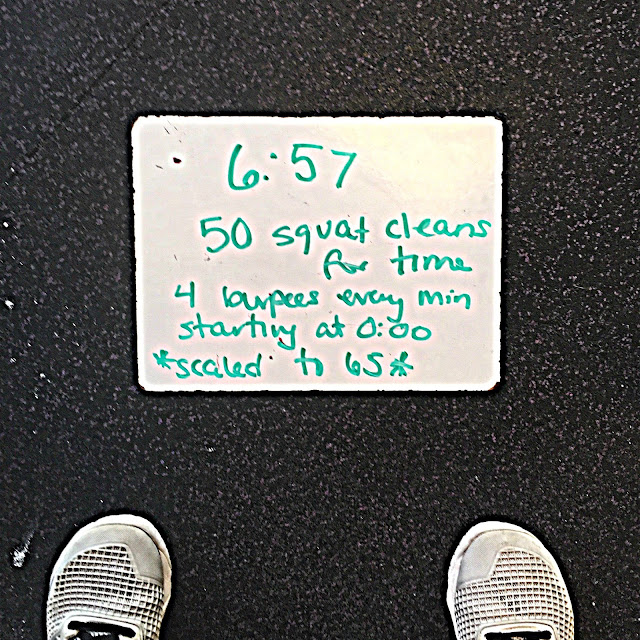 6:57
50 squat cleans
for time
4 burpees every min
starting at 0:00
*scaled to 65*